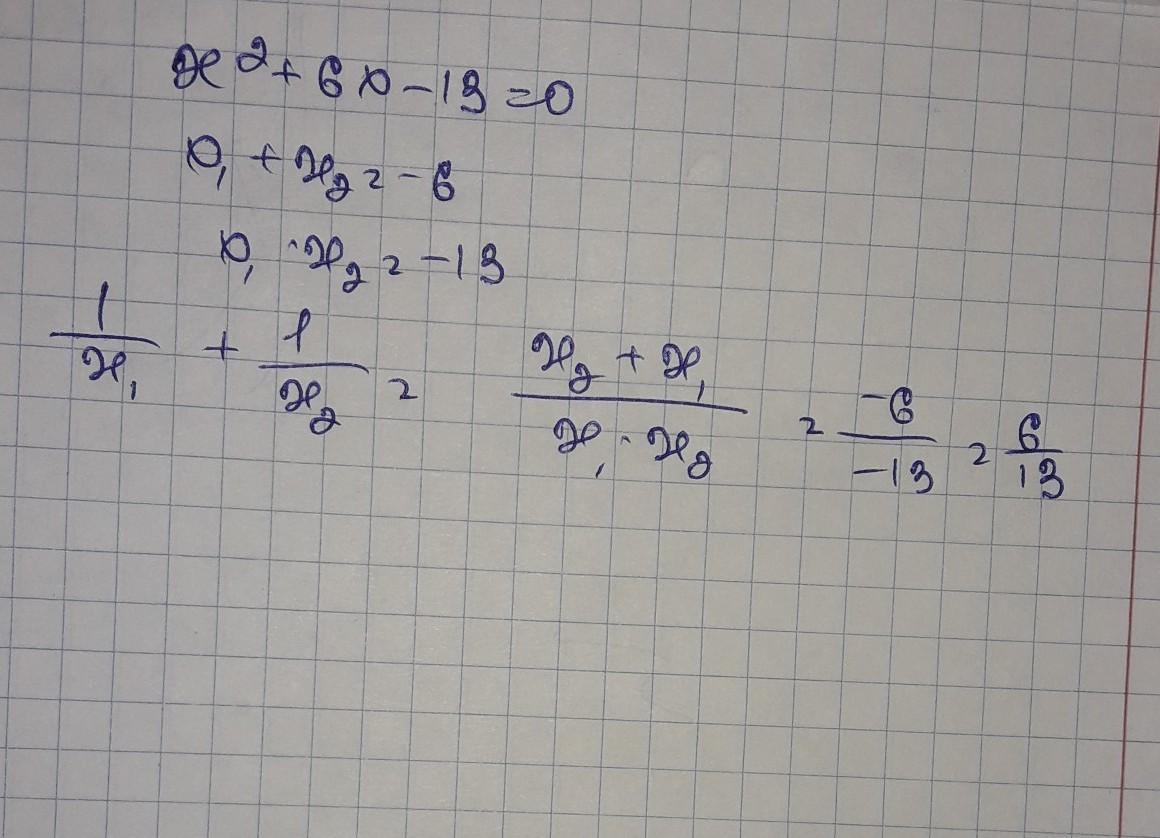 x² + 6x − 13 = 0
x₁ + x₂ = −6
x₁ · x₂ = −13
1/x₁ + 1/x₂ = (x₂ + x₁)/(x₁ · x₂) = −6/−13 = 6/13